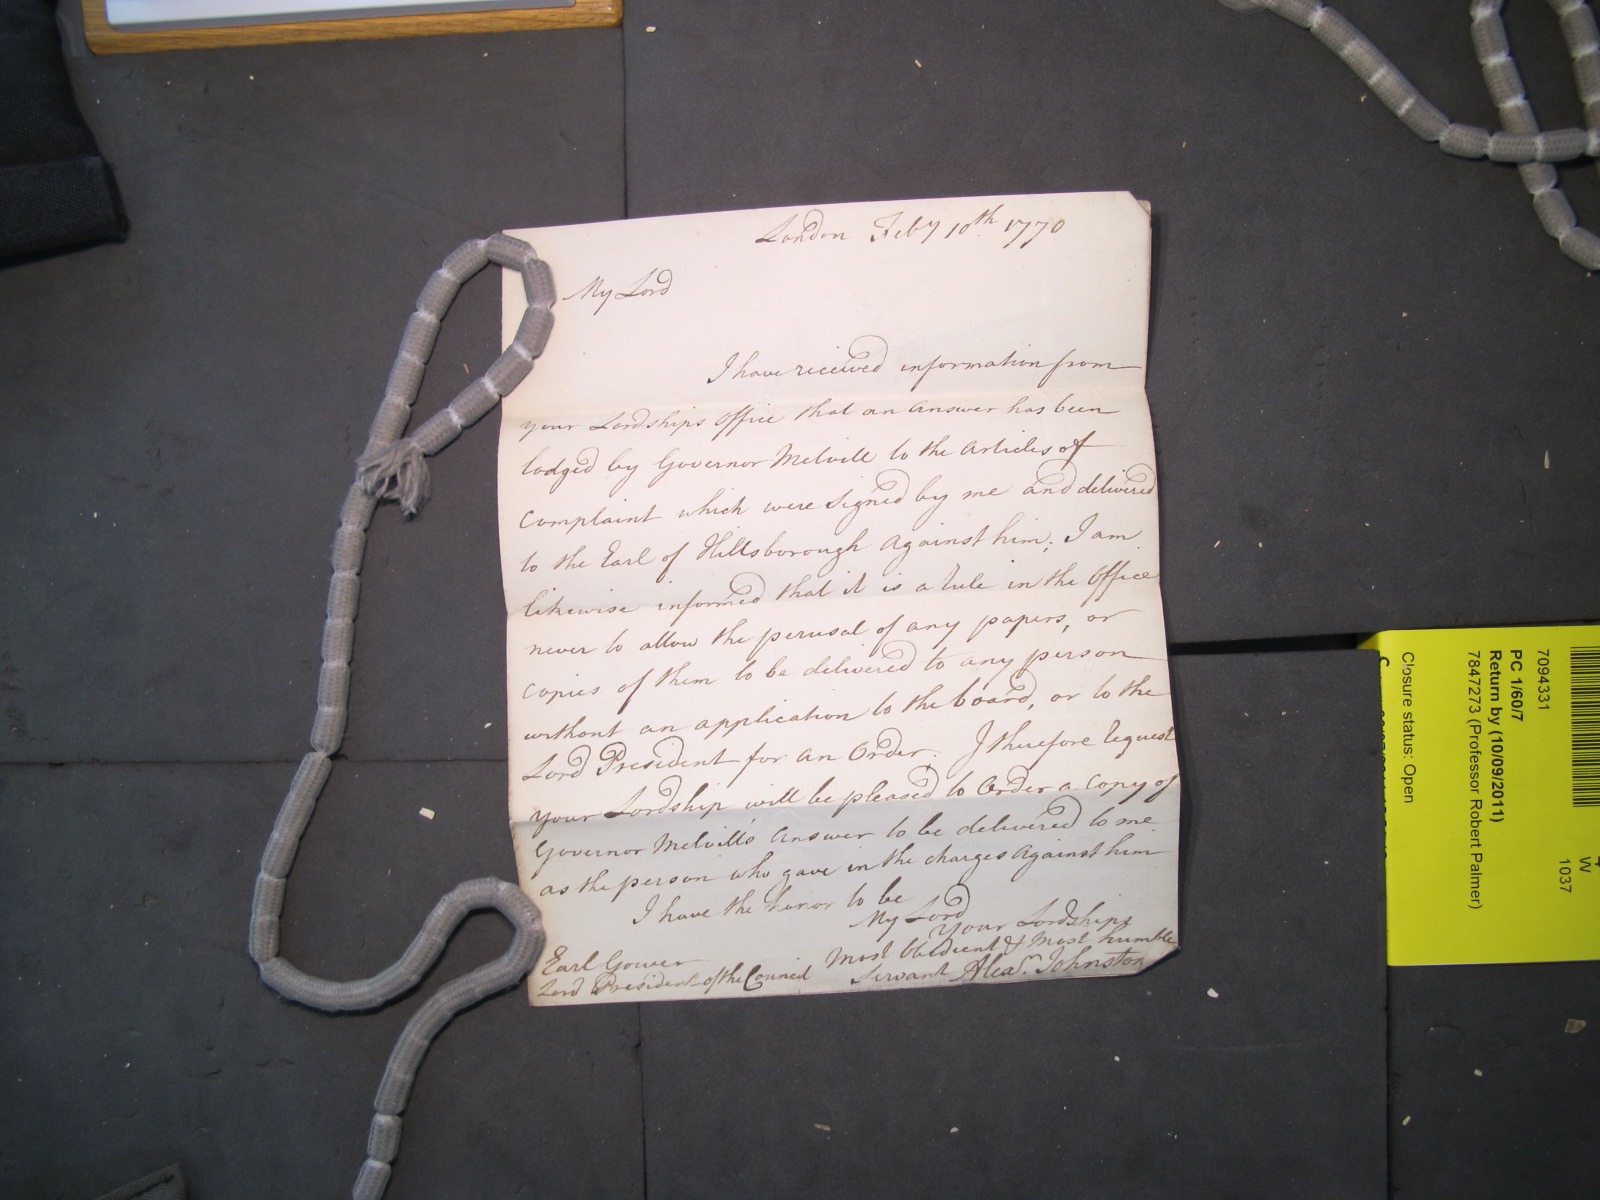 London Feby 10th 1770
My Lord
I have received information from
your Lordships office that an answer has been
lodged by Governor Melvill to the Articles of
Complaint which were signed by me and delivered
to the Earl of Hillsborough against him; I am
likewise informed that it is a rule in the Office
never to allow the perusal of any papers, or
copies of them to be delivered to any person
without an application to the board, or to the
Lord President for an Order. I therefore request
your Lordship will be pleased to Order a Copy of
Governor Melvill's answer to be delivered to me
as the person who gave in the charges against him
I have the honor to be
My Lord
your Lordships
most obedient & most humble
Servant Alexr. Johnston
Earl Gower
Lord President of the Council
7094331
PC 1/60/7
Return by (10/09/2011)
7847273 (Professor Robert Palmer)
Closure status: Open
W
1037